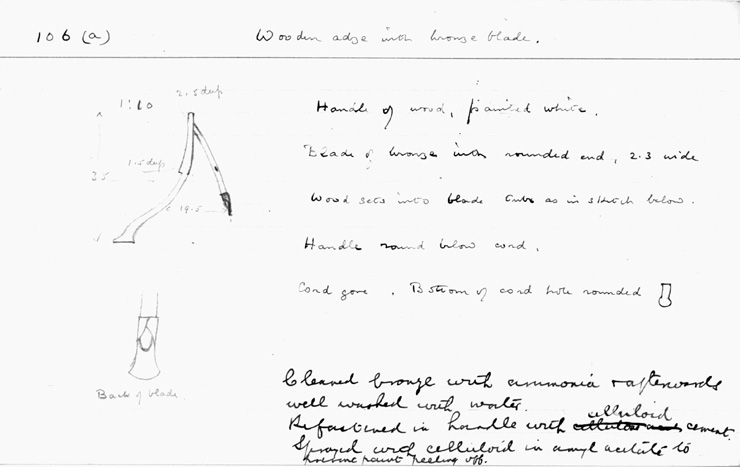 106 (a)
Wooden adze with bronze blade.
1:10
2.5 deep
Handle of wood, painted white.
1.5 deep
Blade of bronze with rounded end, 2.3 wide
35
19.5
Wood sets into blade as in sketch below.
Handle round below cord.
Cord gone. Bottom of cord hole rounded
Back of blade.
Cleaned bronze with ammonia & afterwards
well washed with water.
celluloid
Refastened in handle with cement.
Sprayed with celluloid in amyl acetate to
prevent paint peeling off.